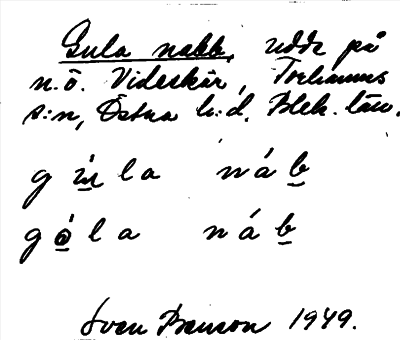 Gula nabb, udde på
n.ö. Videskär, Torhamns
s:n, Östra h:d. Blek. län.
g ú̲ l a n á b̲
g ó̲ l a n á b̲
Sven Benson 1949.